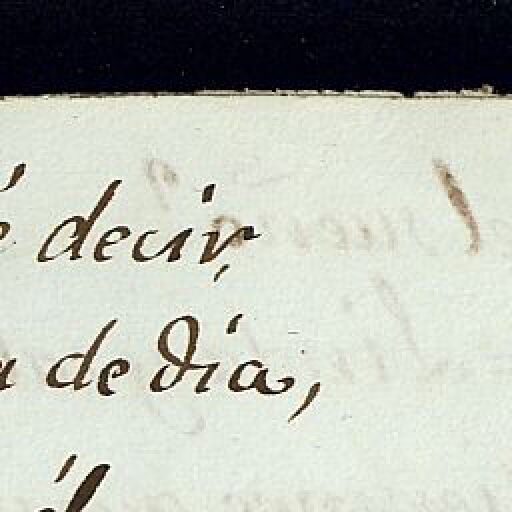 é decir,
a de dia,
él